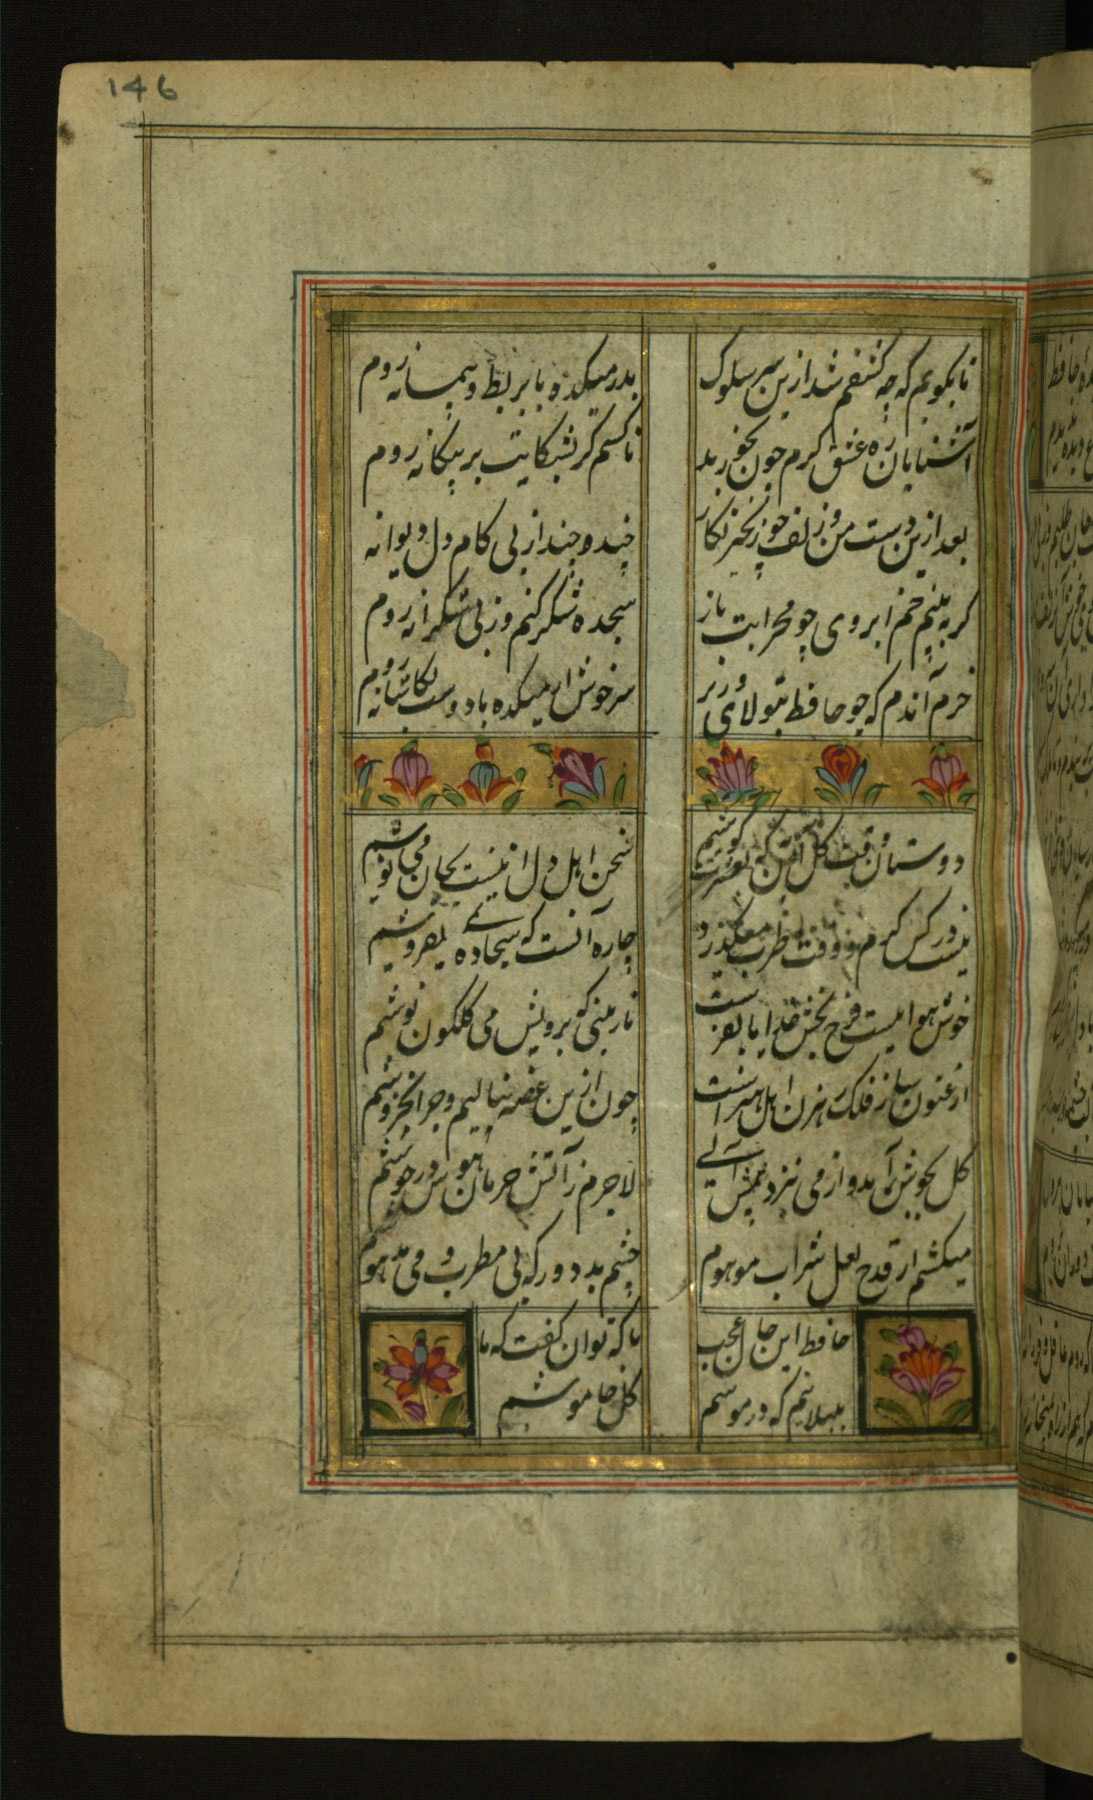 146
تا بگویم که چه کشفم شد ازین سیر سلوک
بدر میکده با بربط و پیمانه روم
آشنایان ره عشق گرم چون بخورند
ناکسم گر بشکایت بر بیگانه روم
بعد ازین دست من و زلف چو زنجیر نگار
چند و چند از پی کام دل دیوانه
گر ببینم خم ابروی چو محرابت باز
سجده شکر کنم وز پی شکرانه روم
خرم آندم که چو حافظ بتولای وزیر
سرخوش از میکده با دوست بکاشانه روم
دوستان وقت گل آن به که بعشرت کوشیم
سخن اهل دل است این بجان می نوشیم
نیست در کس کرم و وقت طرب میگذرد
چاره آنست که سجاده بمی بفروشیم
خوش هوایست فرح بخش خدایا بفرست
نازنینی که برویش می گلگون نوشیم
ارغنون ساز فلک رهزن اهل هنر است
چون ازین غصه ننالیم و چرا نخروشیم
گل بجوش آمد و از می نزدیمش آبی
لاجرم ز آتش حرمان هوس در جوشیم
میکشیم از قدح لعل شراب موهوم
چشم بد دور که بی مطرب و می مدهوشیم
حافظ این حال عجب
با که توان گفت که ما
بلبلانیم که در موسم
گل خاموشیم